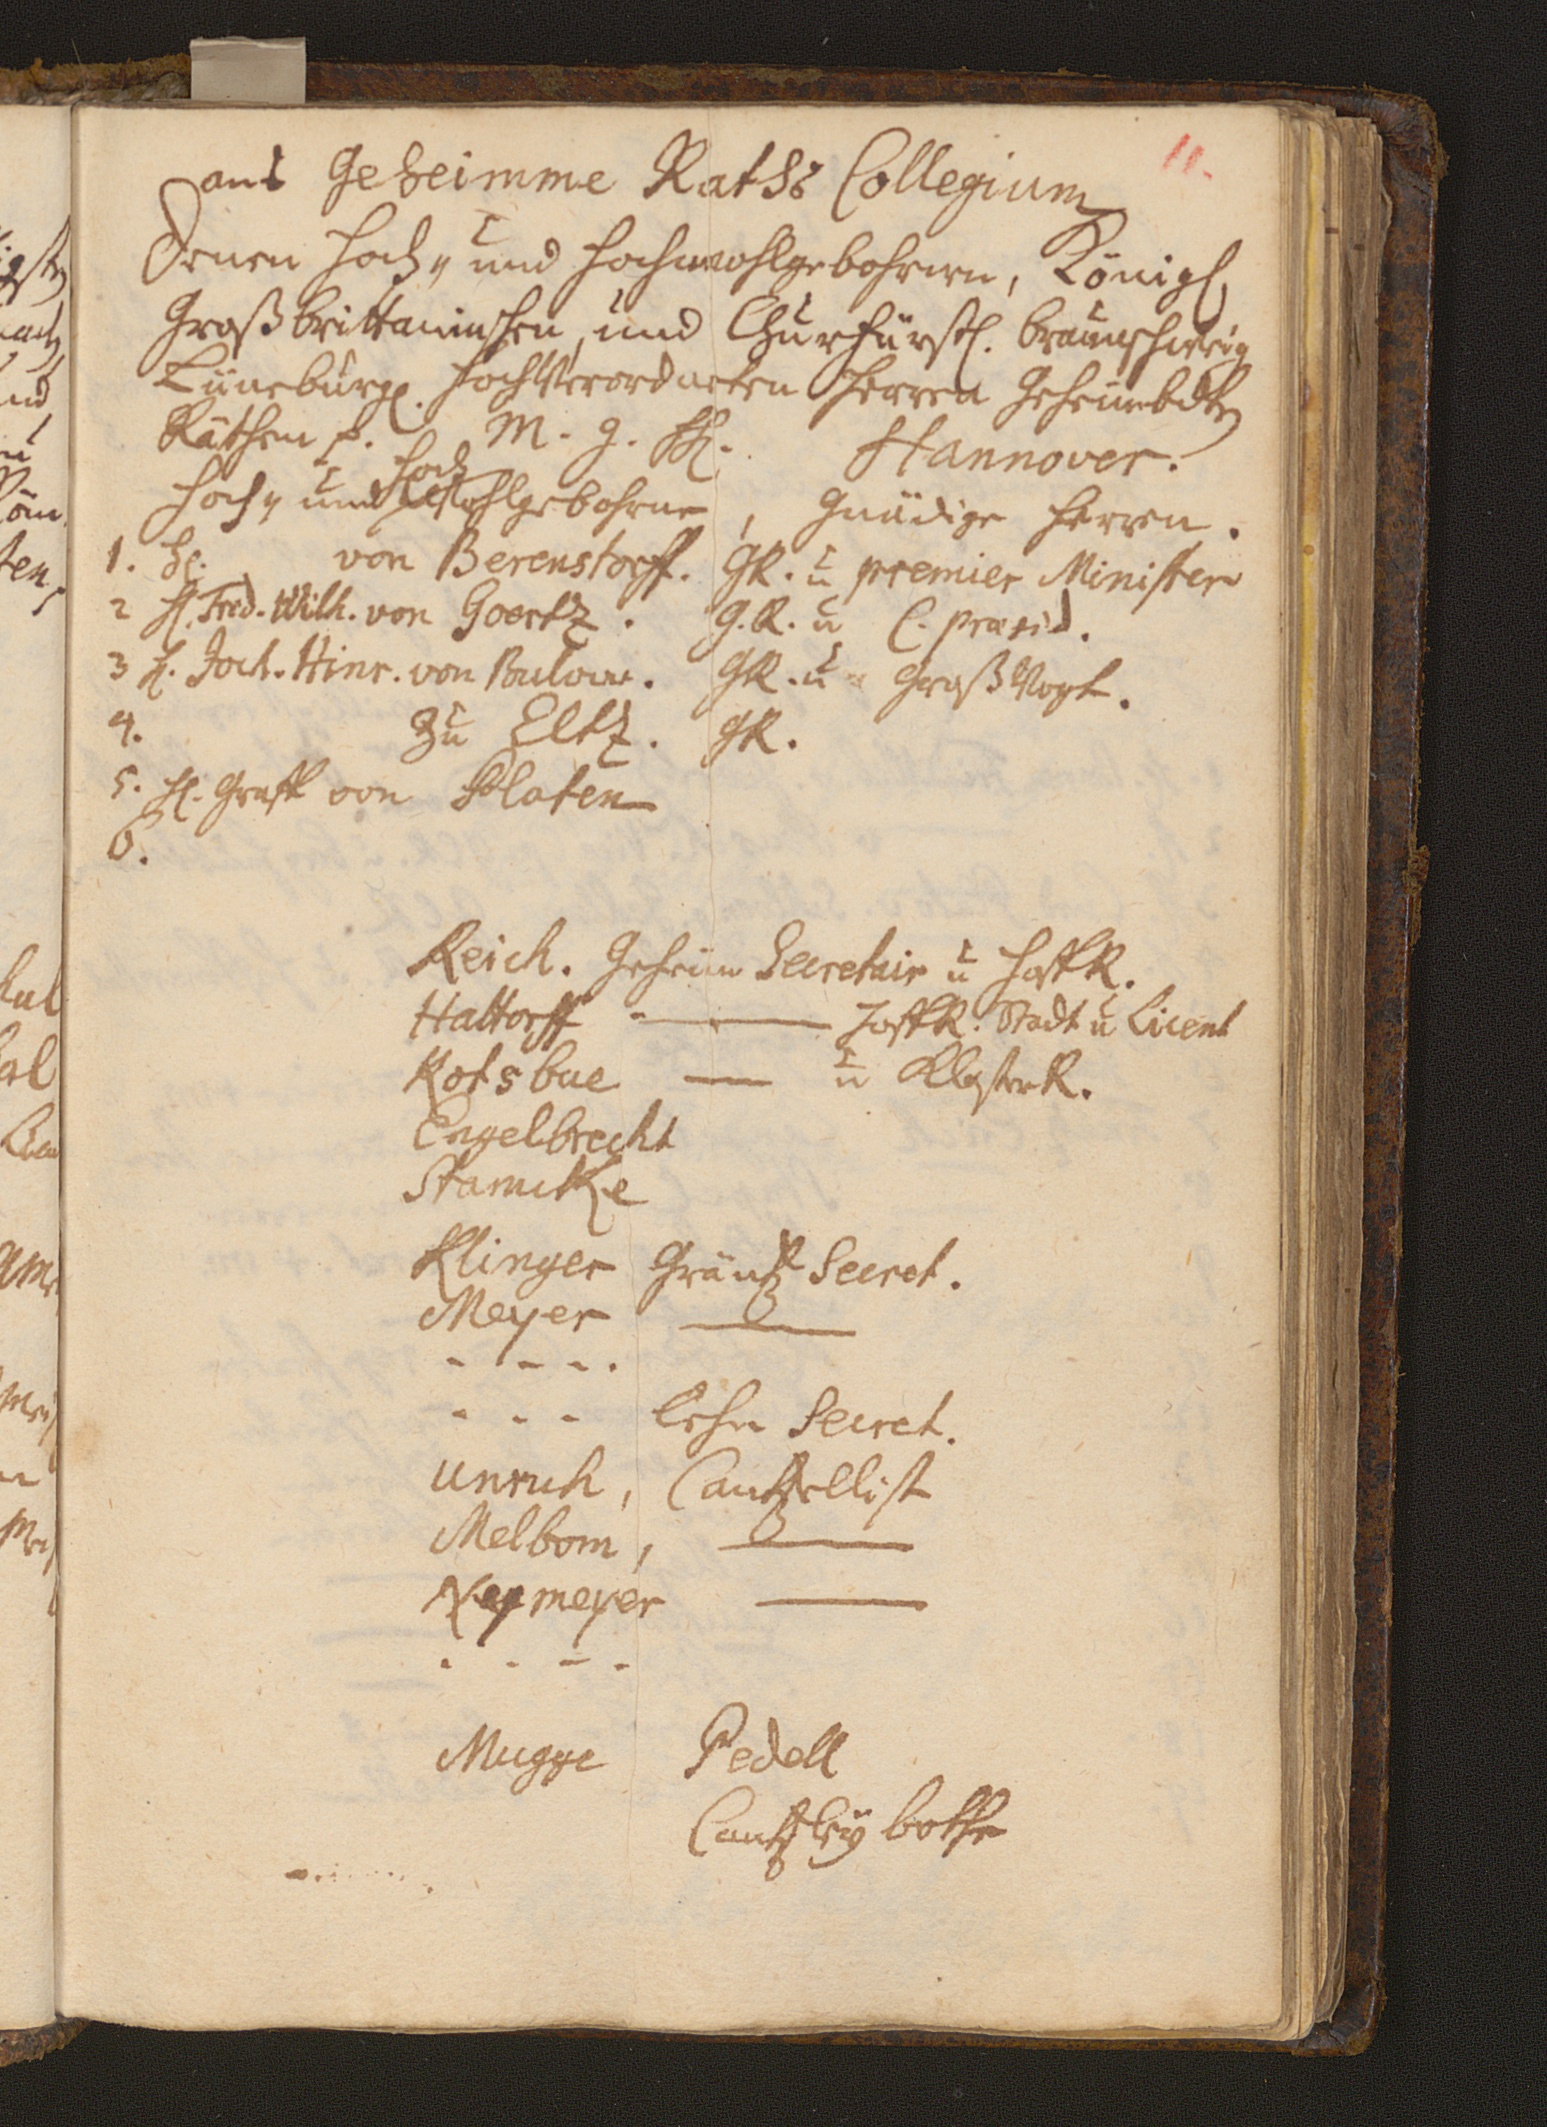 11.
ans Geheimme Raths Collegium
Denen Hoch- und Hochwohlgebohrnen, Königl.
Großbrittannischen und Churfürstl. Braunschweig
Lüneburgl. Hochverordneten Herren Geheimbdten
Räthen p. M. g. HH. Hannover.
Hoch- und Hoch Wohlgebohrne, Gnädige Herren.
1. H. von Berenstorff. GR. u premier Minister
2 H. Fred. Wilh. von Goertz. G.R. u C. præsid.
3 H. Joch. Hinr. von Bulow. GR. u Groß Vogt.
4. Zu Eltz. GR.
5. H. Graff von Platen
6.
Reich. Geheim Secretair u HoffR.
Hattorff — HoffR. Stadt u Licent
Kotsbue — u KlosterR.
Engelbrecht
Stamcke
Klinger Gräntz Secret.
Meyer —
- - - .
- - - Lehn Secret.
Unruh, Cantzellist
Melbom, —
Neymeyer —
. - - -
Mugge Pedell
Cantzley botte